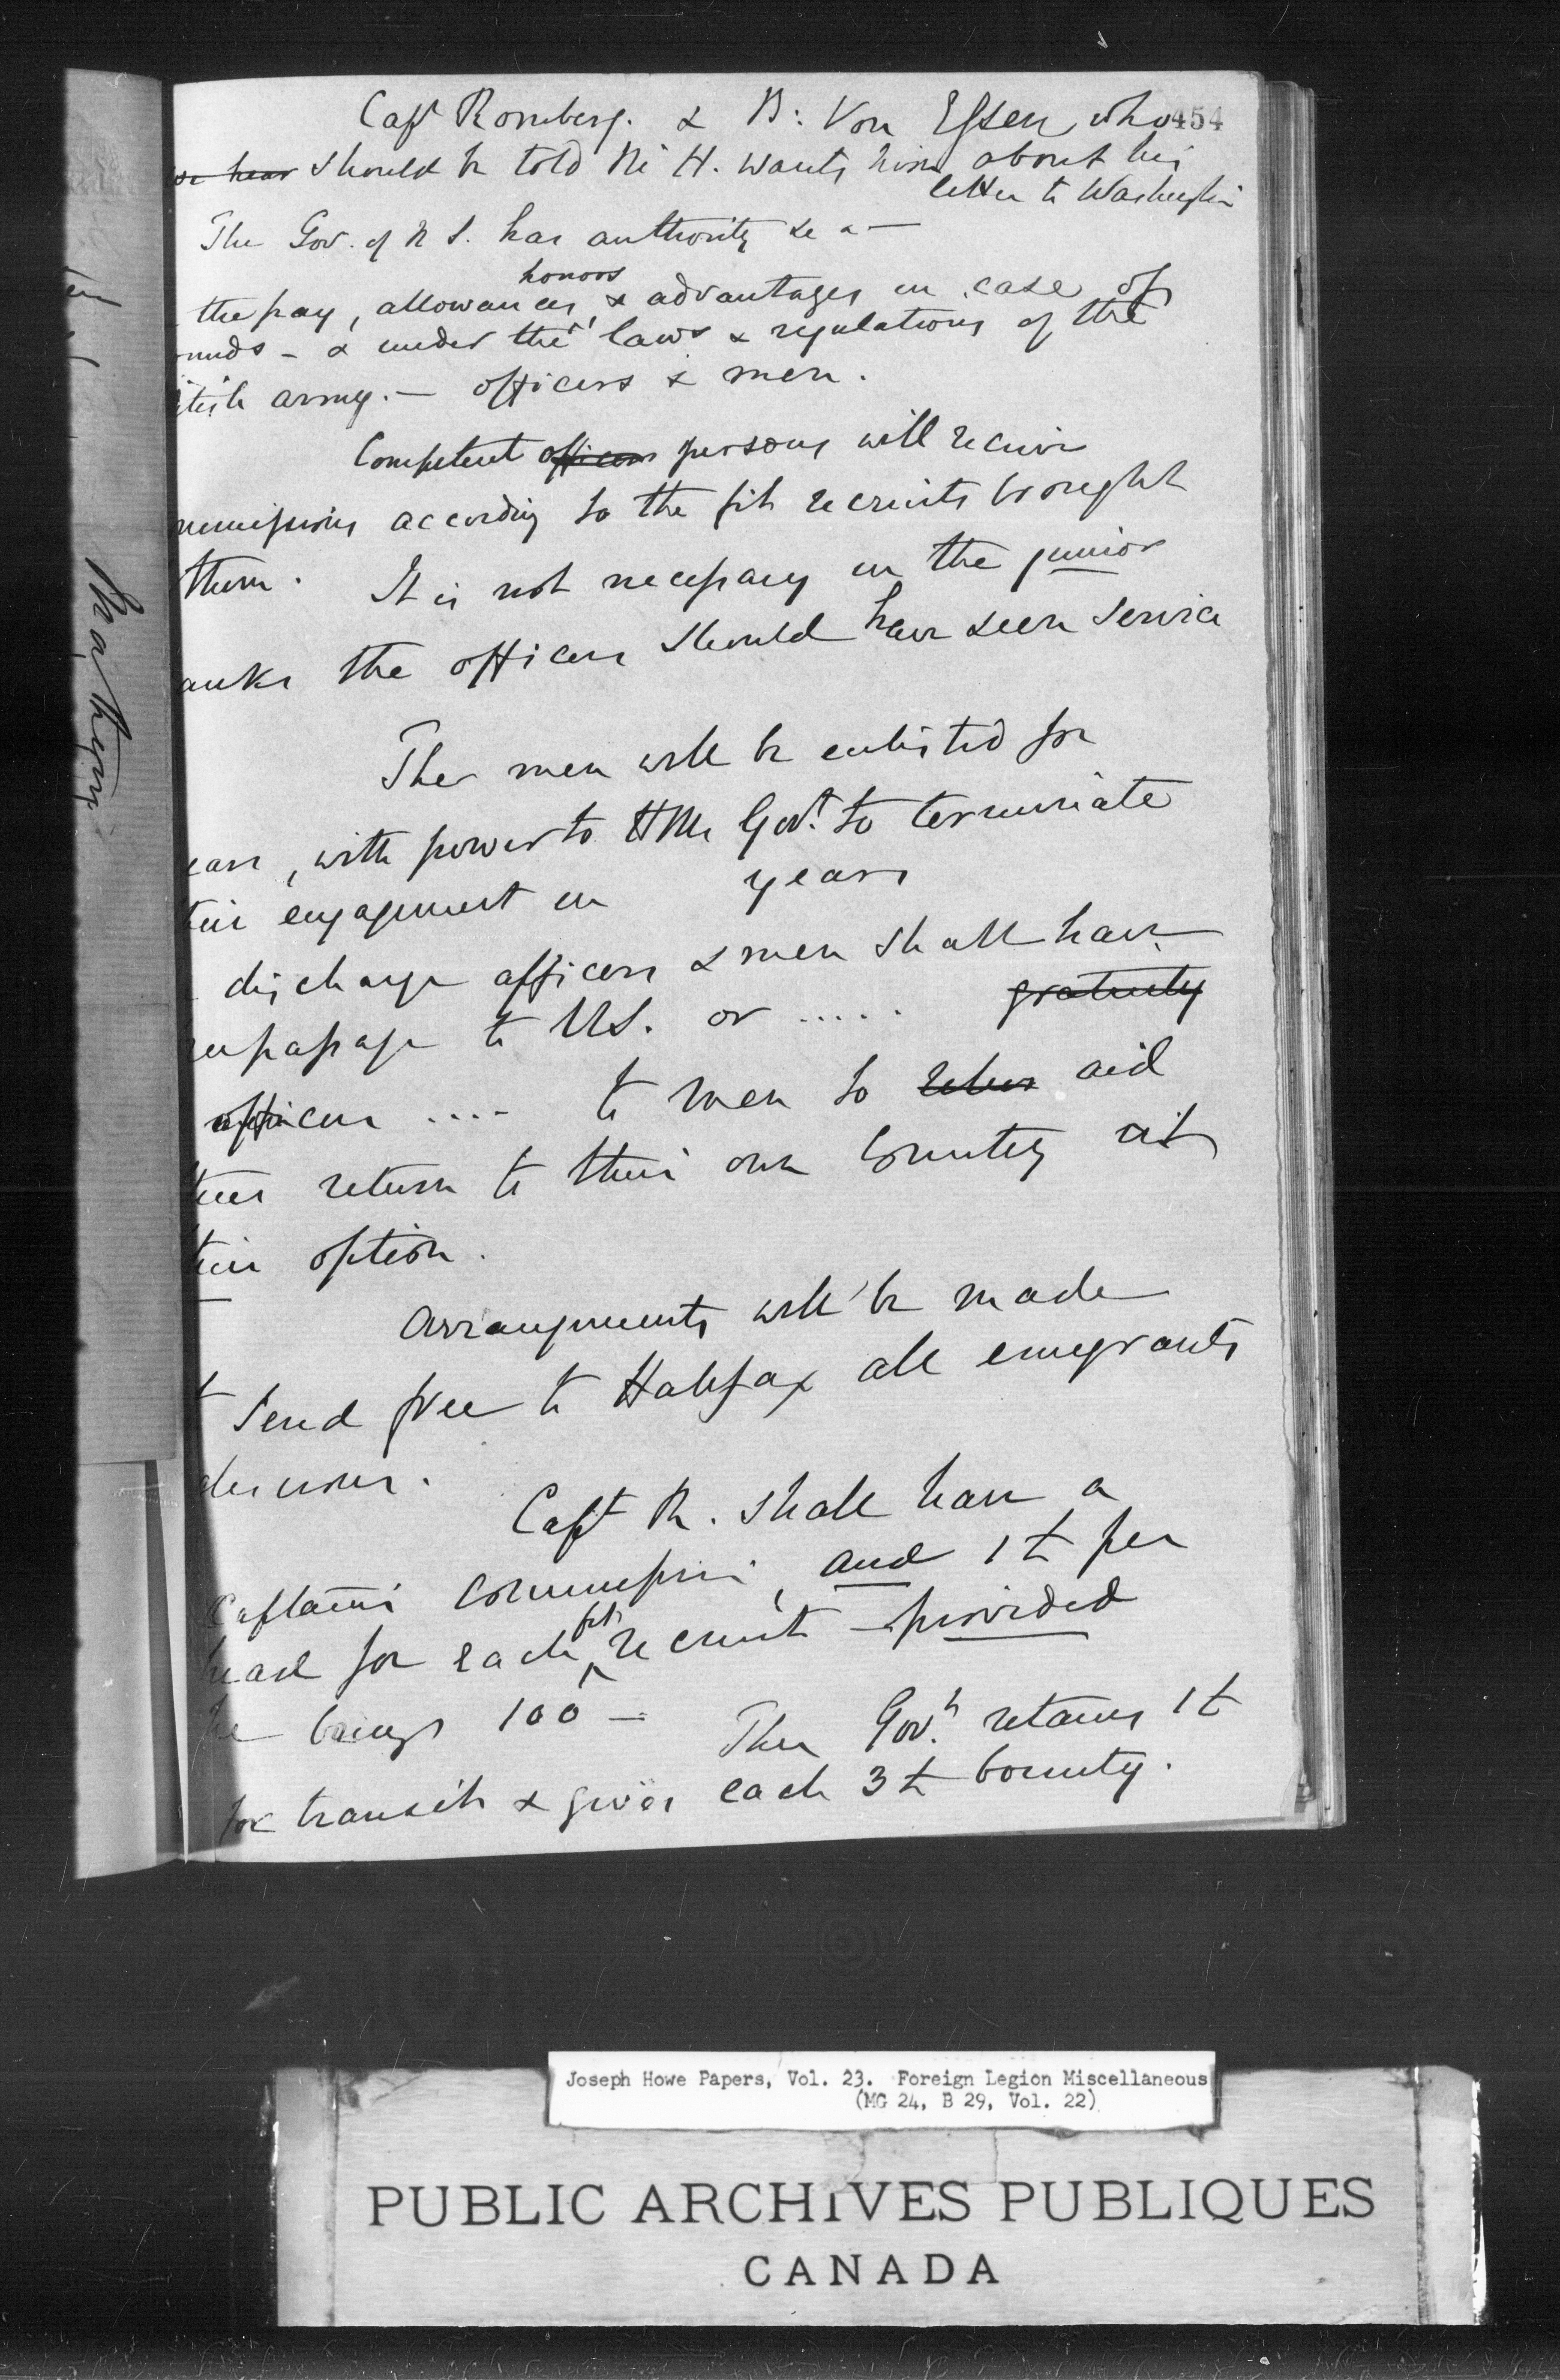 454
Capt Romberg. & B: Von Essen who
should be told Mr H. wants him about his
letter to Washington
The Gov. of N S. has authority to a—
honors
the pay, allowances, & advantages in case of
unds - & under the laws & regulations of the
itish army. — officers & men.
Competent officers persons will receive
mmissions according to the fit recruits brought
them. It is not necessary in the junior
anks the officers should have seen service
The men will be enlisted for
ears, with power to HM Govt. to terminate
their engagement in years
discharge officers & men shall have
passage to US. or ..... gratuity
officers .... to men to aid
their return to their own Country at
their option.
Arrangements will be made
to send free to Halifax all emigrants
desirous.
Capt R. shall have a
Captains Commission, and 1£ per
head for each fit recruit - provided
he brings 100 —
The Govt. retains 1£
for transit & gives each 3£ bounty.
Joseph Howe Papers, Vol. 23. Foreign Legion Miscellaneous
(MG 24, B 29, Vol. 22)
PUBLIC ARCHIVES PUBLIQUES
CANADA